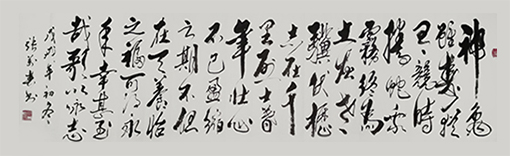 神龜
雖壽猶
有競時
騰蛇乘
霧終為
土灰老
驥伏櫪
志在千
里烈士暮
年壯心
不已盈縮
之期不但
在天養怡
之福可得永
年幸甚至
哉歌以詠志
戊戌年初冬